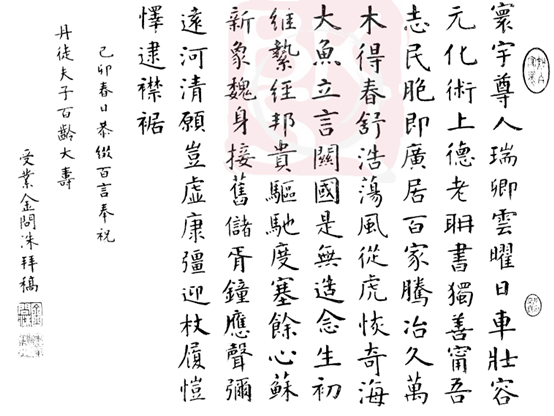 寰宇尊人瑞卿雲曜日車壯容
元化術上德老聃書獨善甯吾
志民胞即廣居百家騰冶久萬
木得春舒浩蕩風從虎恢奇海
大魚立言關國是無造念生初
維縶經邦貴驅馳度塞餘心蘇
新象魏身接舊儲胥鐘應聲彌
遠河清願豈虛康彊迎杖履愷
懌逮襟裾
己卯春日恭綴百言奉祝
丹徒夫子百齡大壽
受業金問洙拜稿